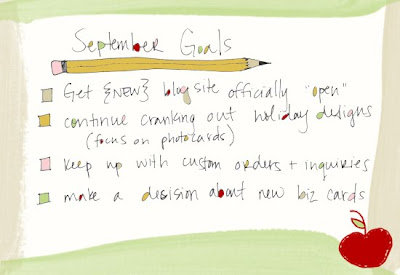 September Goals
Get {NEW} blog site officially "open"
continue cranking out holiday designs
(focus on photocards)
keep up with custom orders + inquiries
make a decision about new biz cards